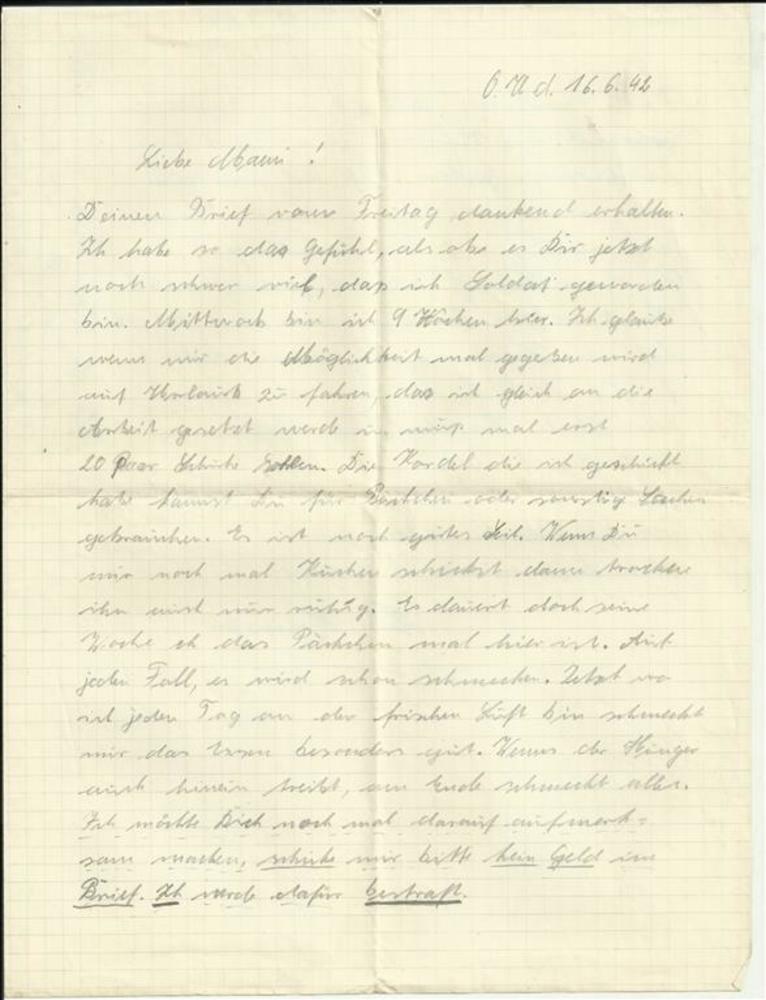 O.U. d. 16.6.42
Liebe Mami!
Deinen Brief vom Freitag dankend erhalten.
Ich habe so das Gefühl, als ob es Dir jetzt
noch schwer viel, das ich Soldat geworden
bin. Mittwoch bin ich 9 Wochen hier. Ich glaube
wenn mir die Möglichkeit mal gegeben wird
auf Urlaub zu fahren, das ich gleich an die
Arbeit gesetzt werde u. muß mal erst
20 Paar Schuhe sohlen. Die Kordel die ich geschickt
habe kannst Du für Päckchen oder sonstige Sachen
gebrauchen. Es ist noch gutes Seil. Wenn Du
mir noch mal Kuchen schickst dann trockne
ihn erst nur ruhig. Es dauert doch seine
Woche eh das Päckchen mal hier ist. Auf
jeden Fall, es wird schon schmecken. Jetzt wo
ich jeden Tag an der frischen Luft bin schmeckt
mir das Essen besonders gut. Wenns der Hunger
auch hinein treibt, am Ende schmeckt alles.
Ich möchte Dich noch mal darauf aufmerk=
sam machen, schicke mir bitte kein Geld im
Brief. Ich werde dafür bestraft.